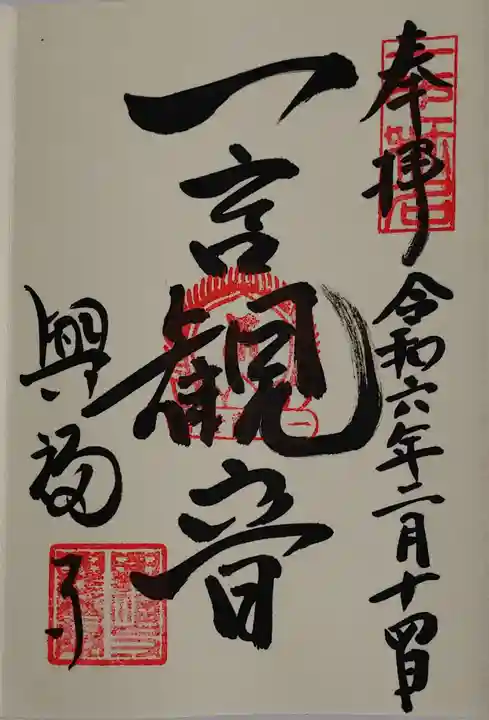 奉拝
令和六年二月十四日
一言観音
興福寺